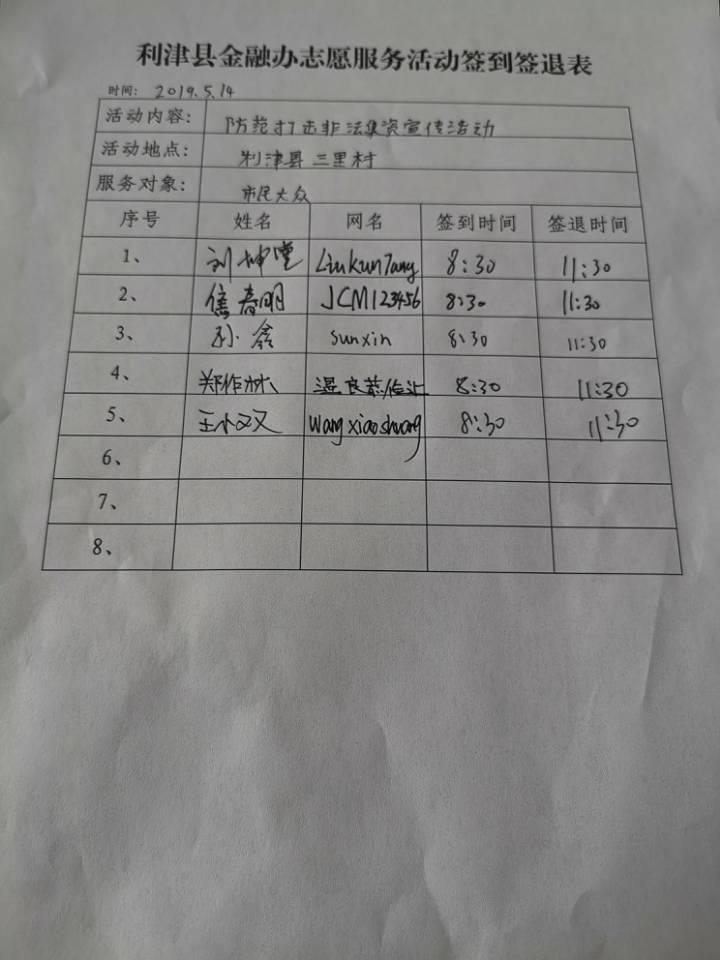 利津县金融办志愿服务活动签到签退表
时间: 2019.5.14
活动内容: 防范打击非法集资宣传活动
活动地点: 利津县三里村
服务对象: 市民大众
序号 姓名 网名 签到时间 签退时间
1、 刘坤堂 LiuKunTang 8:30 11:30
2、 焦春明 JCM123456 8:30 11:30
3、 孙鑫 sunxin 8:30 11:30
4、 郑作林 温良恭俭让 8:30 11:30
5、 王小双 wangxiaoshuang 8:30 11:30
6、
7、
8、